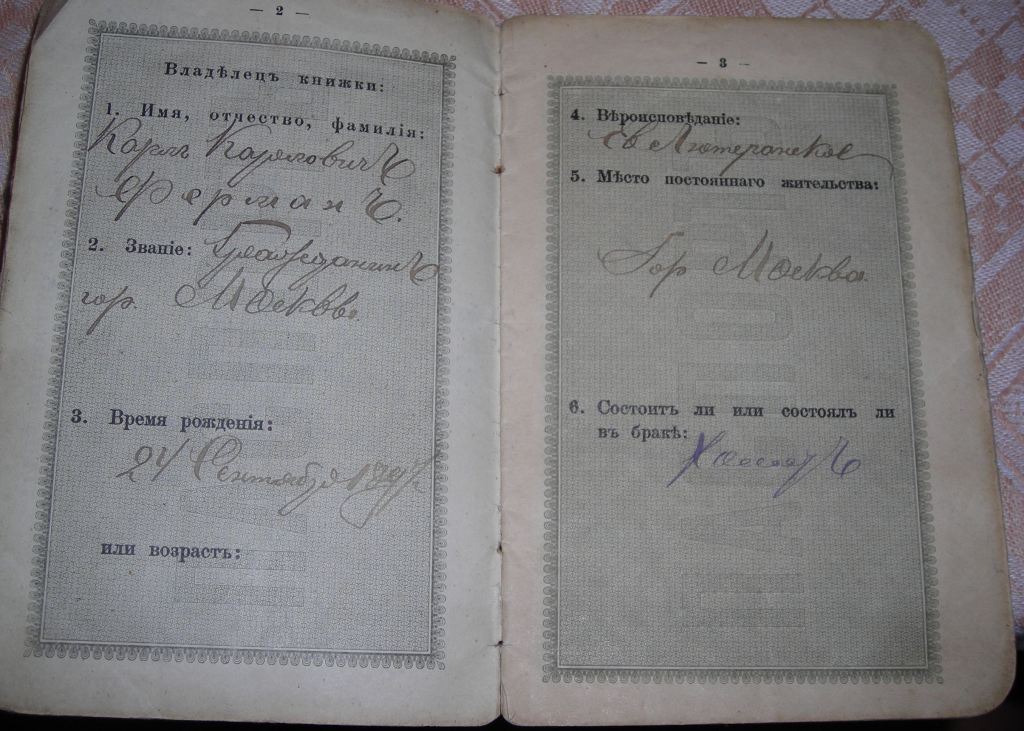 — 2 —
Владѣлецъ книжки:
1. Имя, отчество, фамилія:
Карлъ Карловичъ
Ферманъ.
2. Званіе: Гражданинъ
гор. Москвы
3. Время рожденія:
24 Сентября
или возрастъ:
— 3 —
4. Вѣроисповѣданіе:
Ев Лютеранское
5. Мѣсто постояннаго жительства:
Гор Москва
6. Состоитъ ли или состоялъ ли
въ бракѣ:
Холостъ